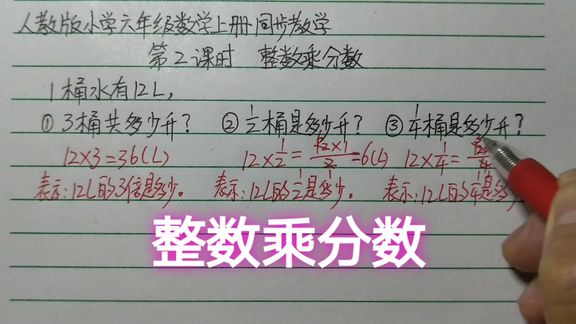 人教版小学六年级数学上册同步教学
第2课时 整数乘分数
1桶水有12L,
① 3桶共多少升? ② 1/2桶是多少升? ③ 1/4桶是多少升?
12×3=36(L) 12×1/2=12×1/2=6(L) 12×1/4=
表示:12L的3倍是多少。 表示:12L的1/2是多少。 表示:12L的1/4是多
整数乘分数